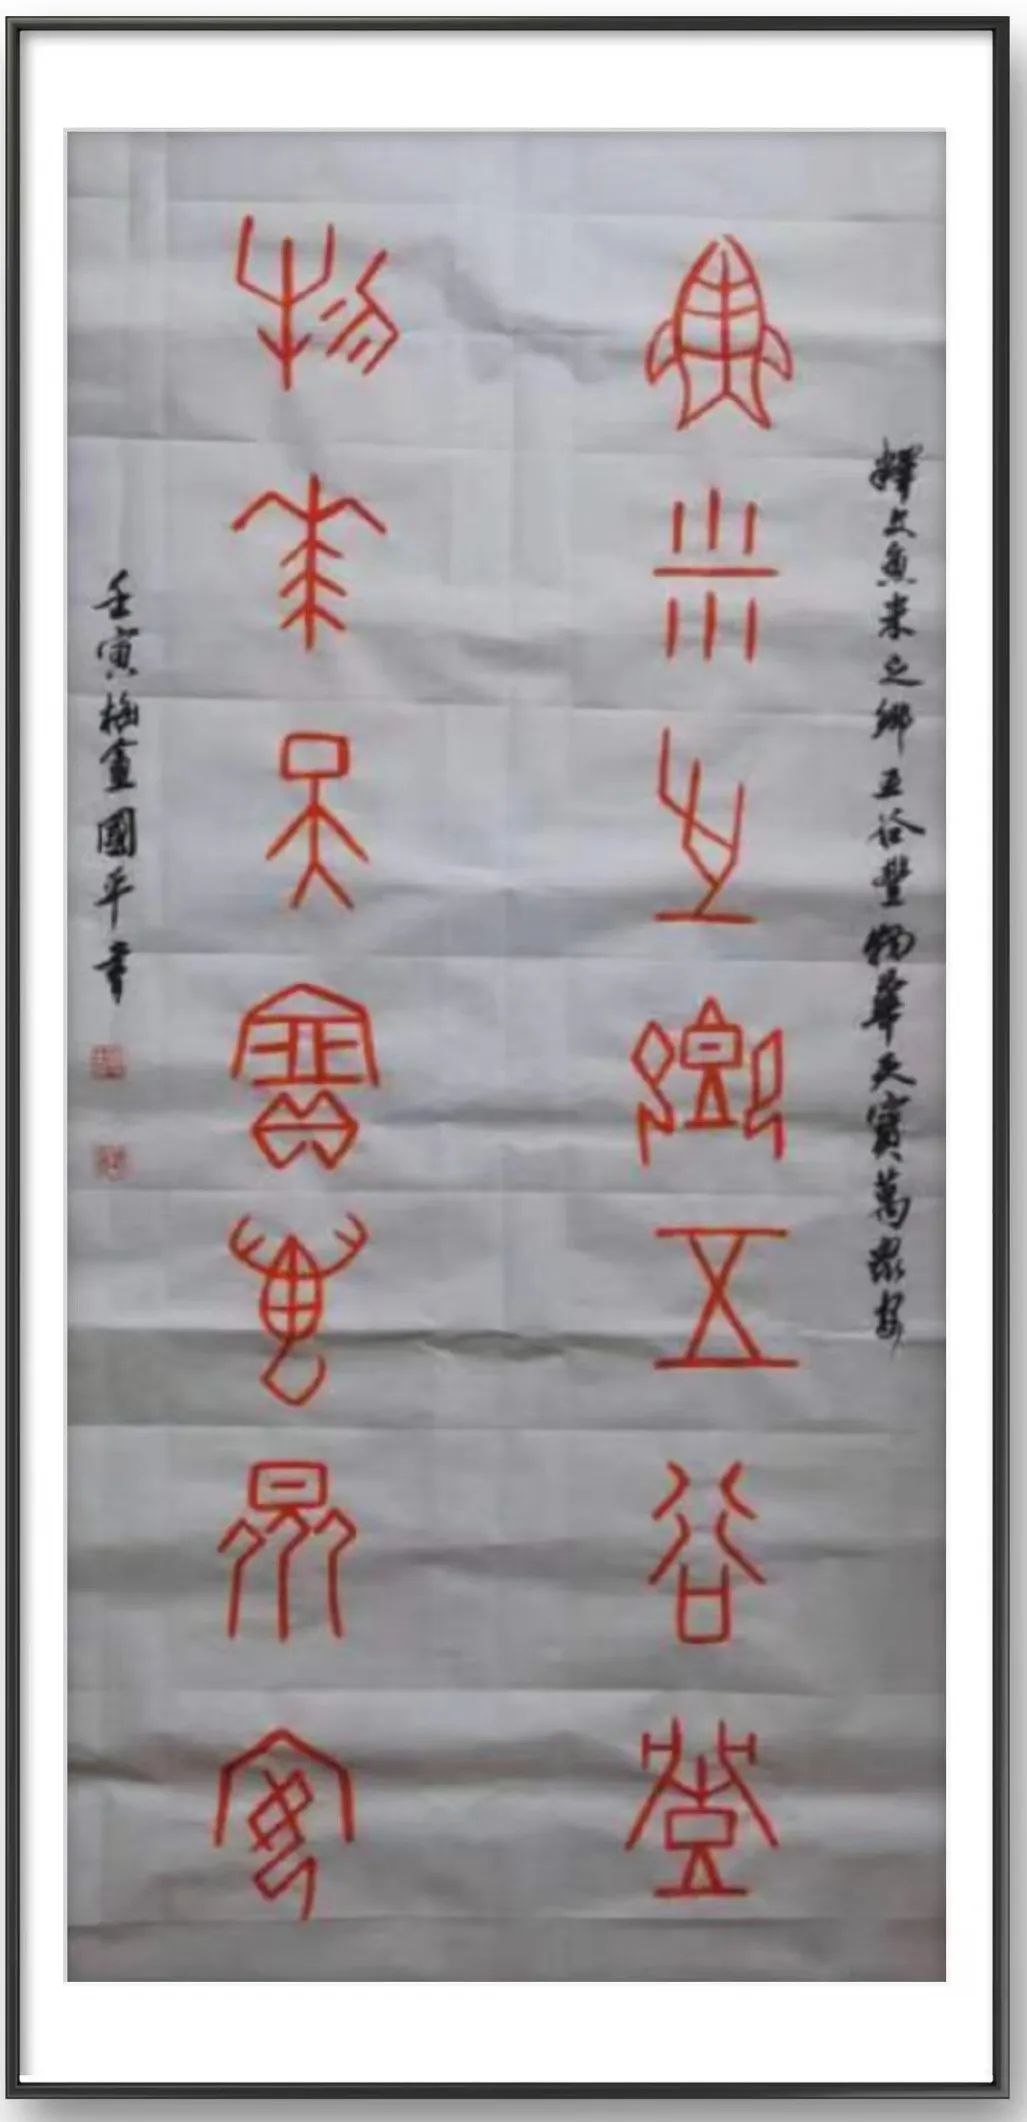 釋文魚米之鄉五谷豐物華天寶萬眾安
魚米之鄉五谷豐
物華天寶萬眾安
壬寅梅盦國平書